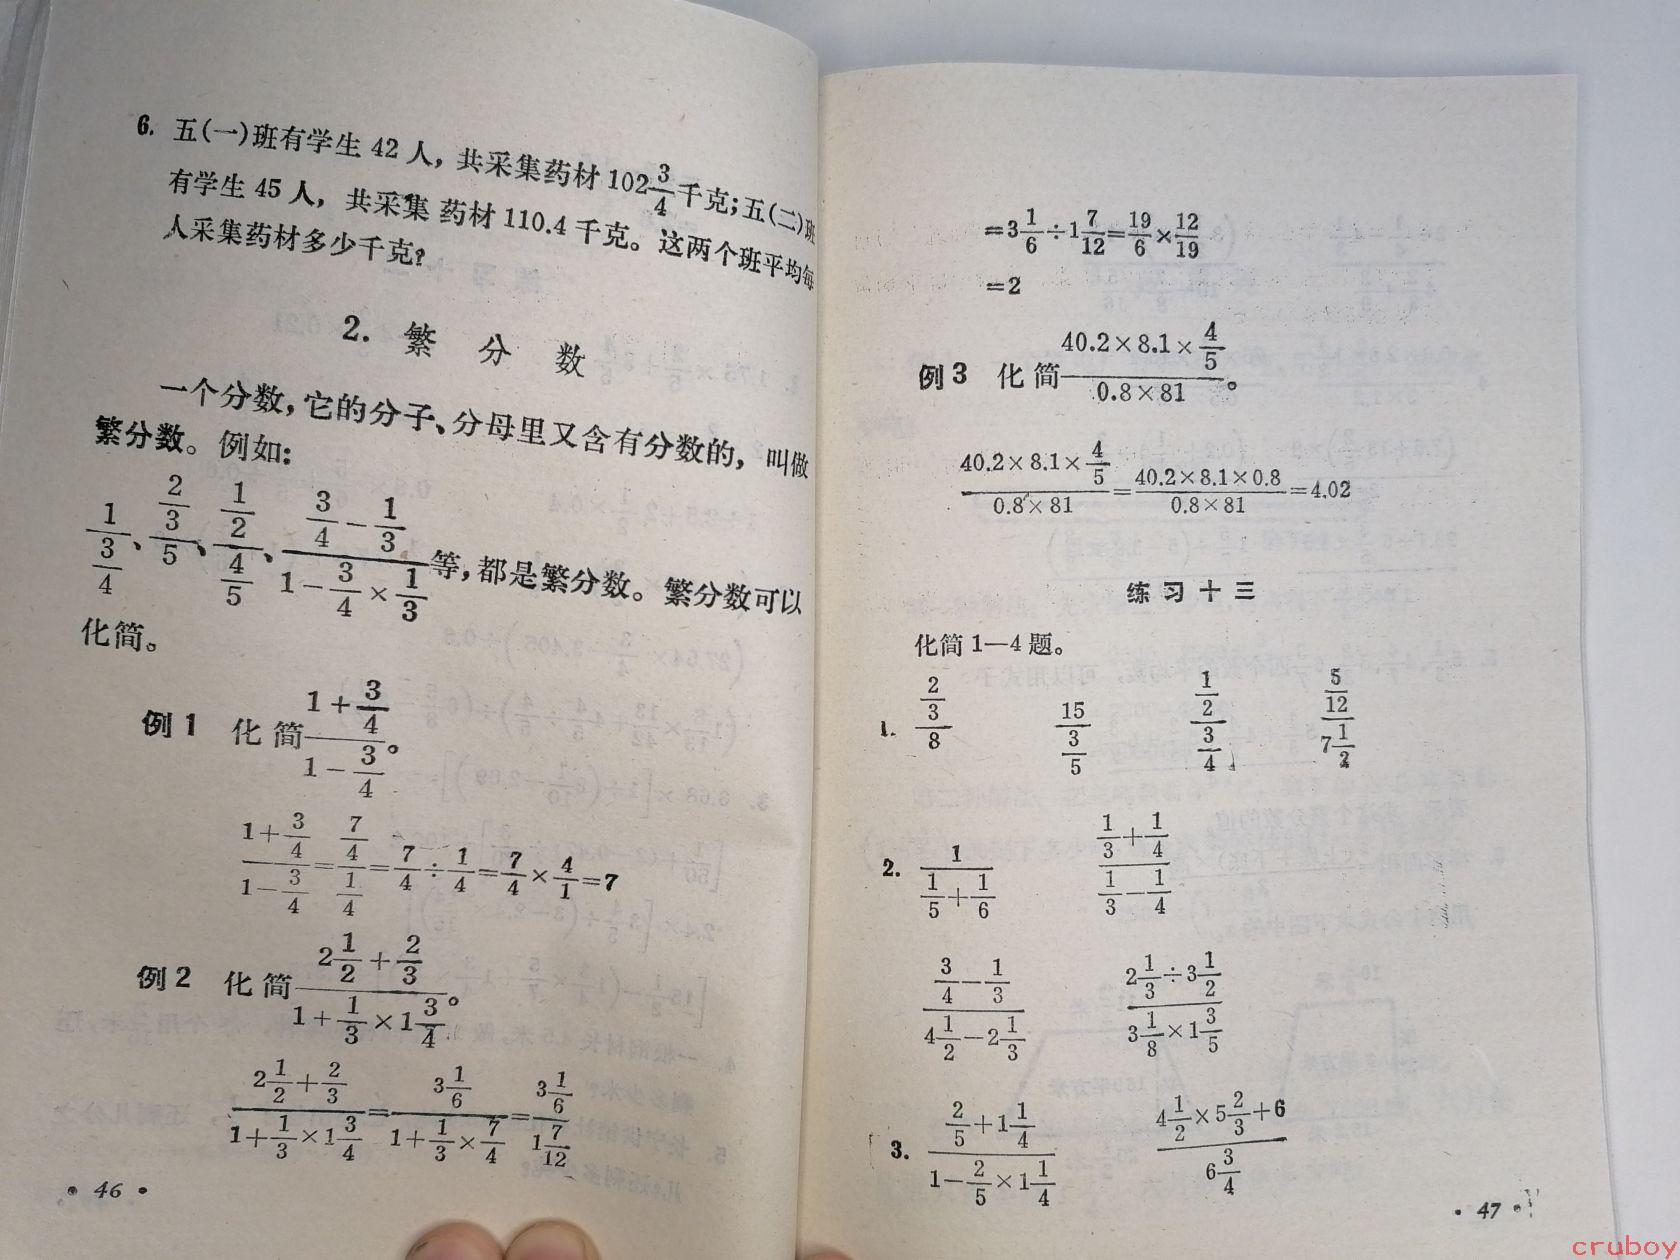 6. 五(一)班有学生 42 人，共采集药材 102 3/4 千克；五(二)班
有学生 45 人，共采集药材 110.4 千克。这两个班平均每
人采集药材多少千克？
2. 繁 分 数
一个分数，它的分子、分母里又含有分数的，叫做
繁分数。例如：
1/(3/4)、(2/3)/5、(1/2)/(4/5)、(3/4 − 1/3)/(1 − 3/4 × 1/3)等，都是繁分数。繁分数可以
化简。
例 1 化简 (1 + 3/4)/(1 − 3/4)。
(1 + 3/4)/(1 − 3/4) = (7/4)/(1/4) = 7/4 ÷ 1/4 = 7/4 × 4/1 = 7
例 2 化简 (2 1/2 + 2/3)/(1 + 1/3 × 1 3/4)。
(2 1/2 + 2/3)/(1 + 1/3 × 1 3/4) = (3 1/6)/(1 + 1/3 × 7/4) = (3 1/6)/(1 7/12)
• 46 •
= 3 1/6 ÷ 1 7/12 = 19/6 × 12/19
= 2
例 3 化简 (40.2 × 8.1 × 4/5)/(0.8 × 81)。
(40.2 × 8.1 × 4/5)/(0.8 × 81) = (40.2 × 8.1 × 0.8)/(0.8 × 81) = 4.02
练 习 十 三
化简 1—4 题。
1. (2/3)/8 15/(3/5) (1/2)/(3/4) (5/12)/(7 1/2)
2. 1/(1/5 + 1/6) (1/3 + 1/4)/(1/3 − 1/4)
(3/4 − 1/3)/(4 1/2 − 2 1/3) (2 1/3 ÷ 3 1/2)/(3 1/8 × 1 3/5)
3. (2/5 + 1 1/4)/(1 − 2/5 × 1 1/4) (4 1/2 × 5 2/3 + 6)/(6 3/4)
• 47 •
cruboy